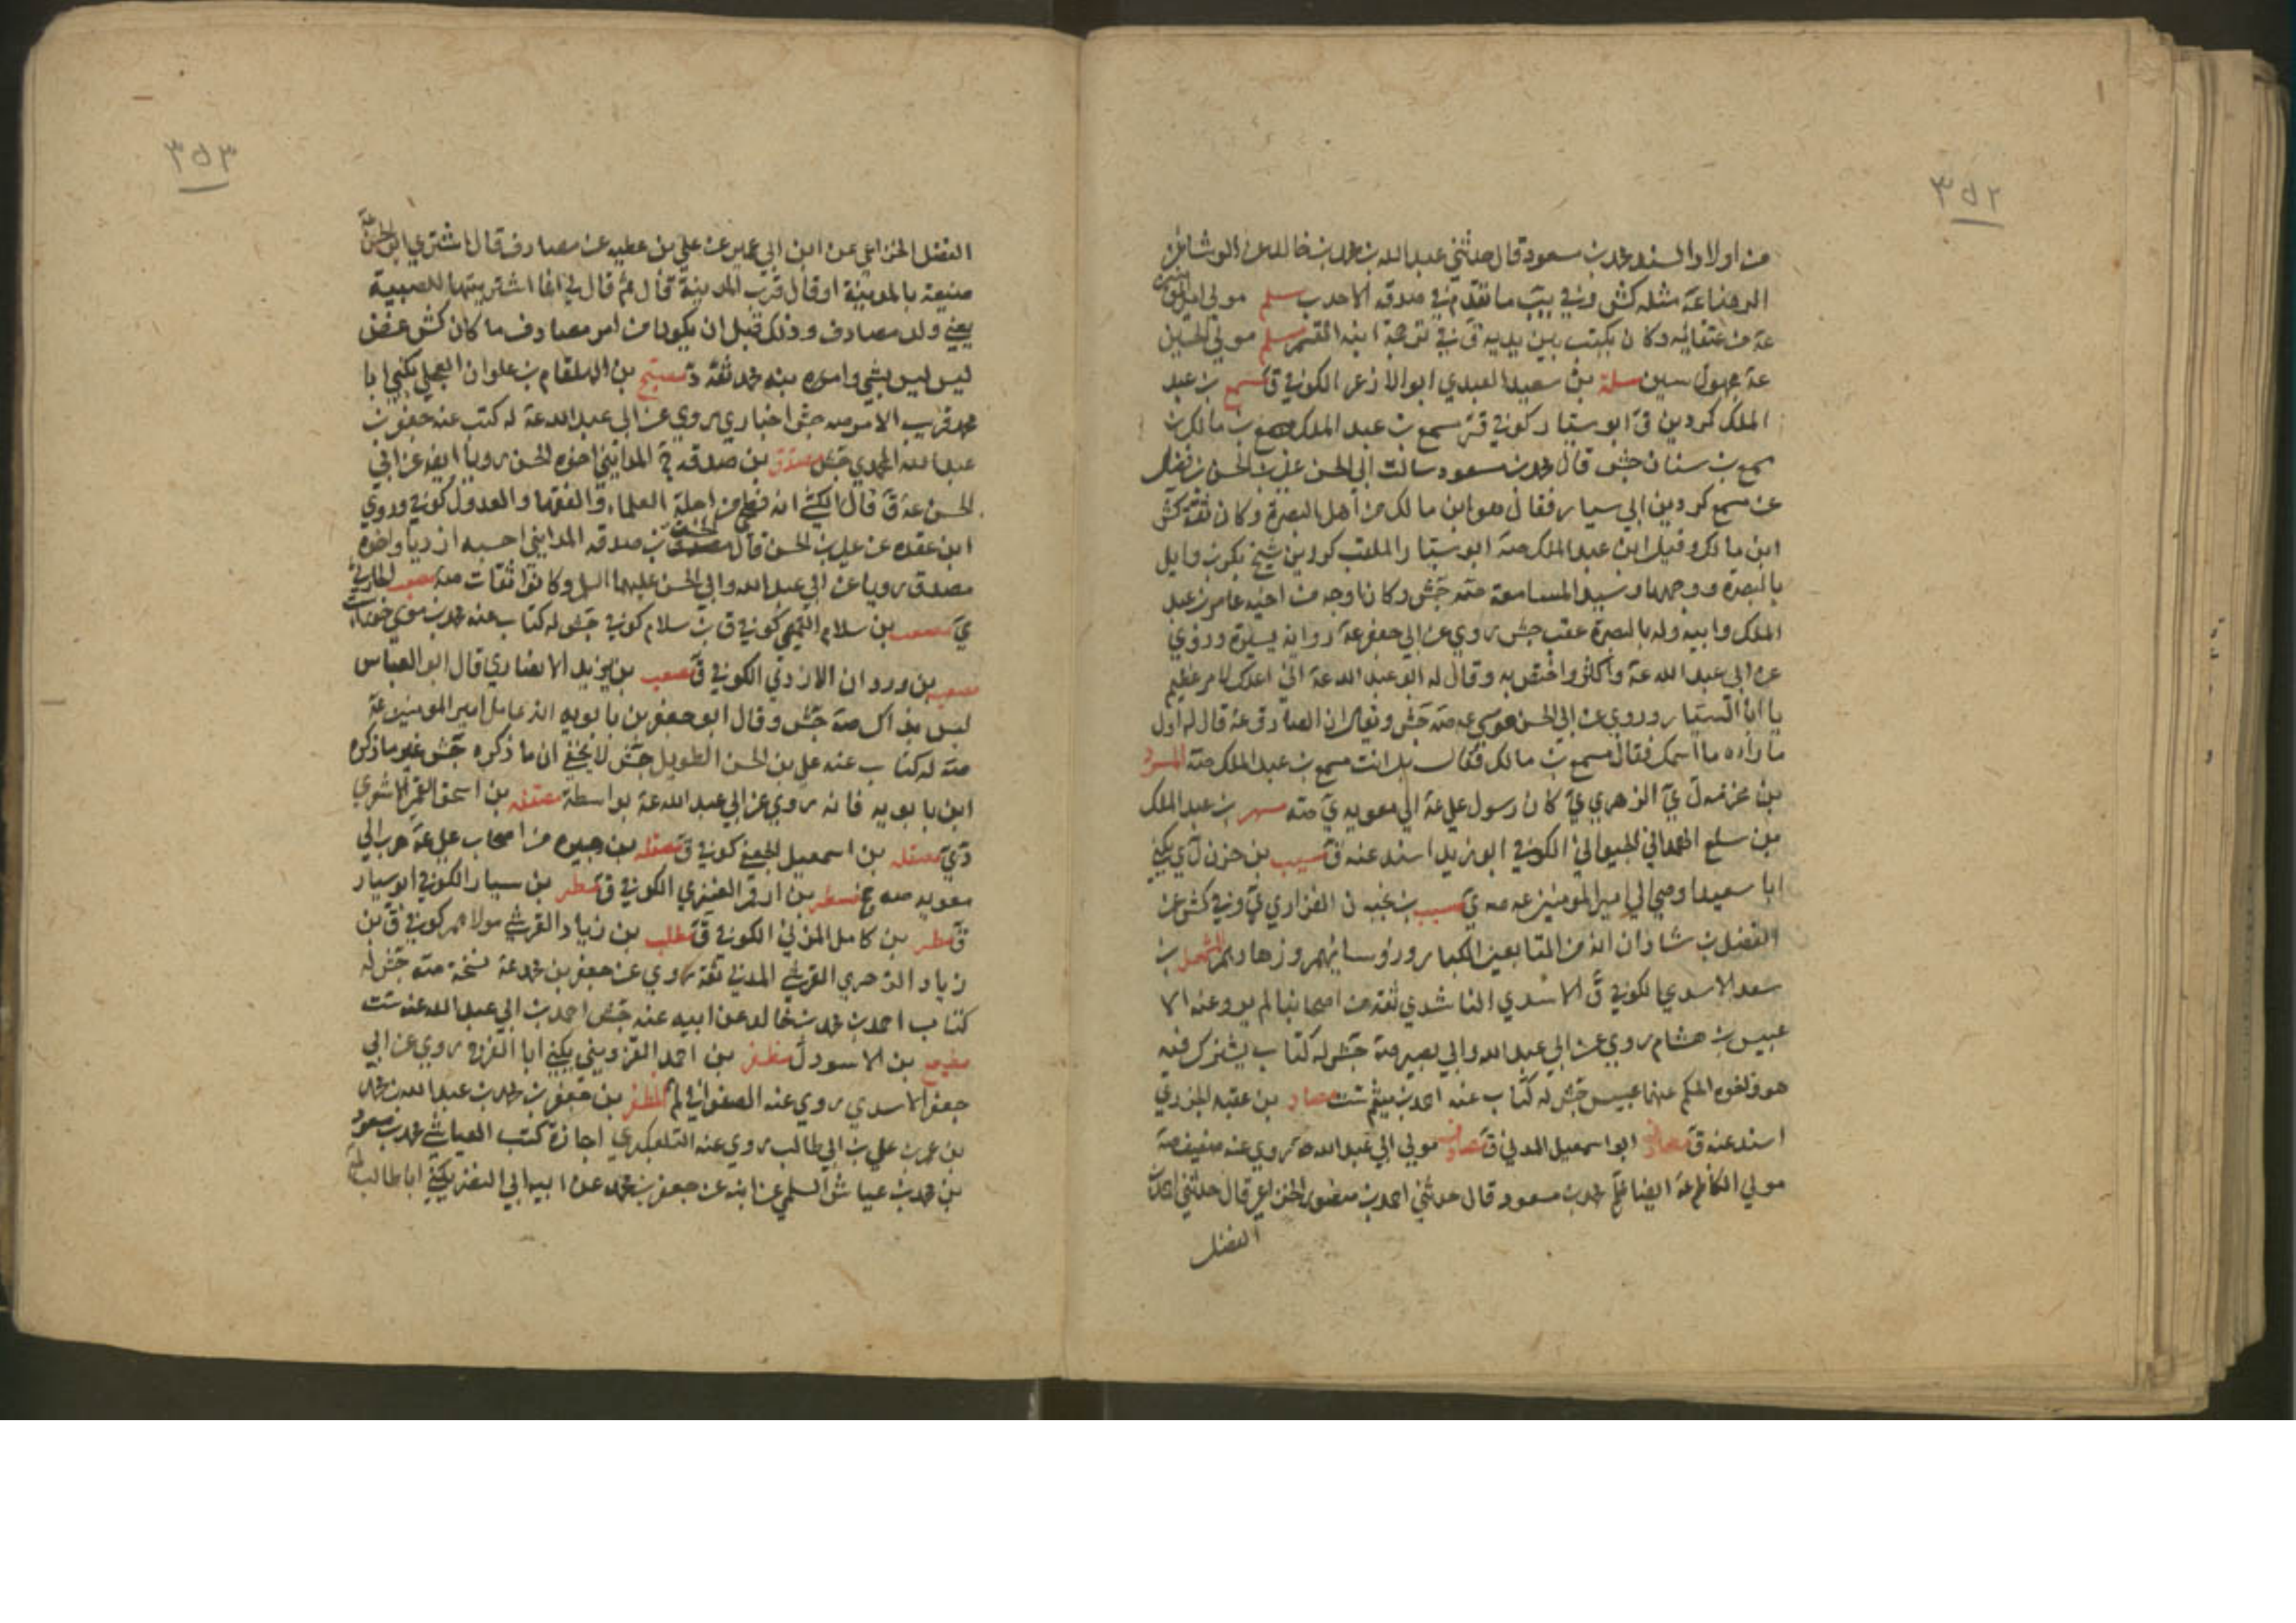 ٣٥٢
من اولاد السند محمد بن مسعود قال حدثني عبدالله بن محمد بن خالد عن الوشا عن
الرضا عة مثله كش وفي ما تقدم في صدقه الاحدب مسلم مولى
عة من عتقائه وكان يكتب بين يديه في ترجمة ابنه القسم مسلم مولى الحسين
عة مجهول سين مسلمة بن سعيد العبدي ابو الازعر الكوفي ق مسمع بن عبد
الملك كردين ق ابو سيار كوفي قر مسمع بن عبد الملك بن مسمع بن مالك بن
مسمع بن سنان جش قال محمد بن مسعود سالت ابي الحسن علي بن الحسن بن فضال
عن مسمع كردين ابي سيار فقال هو ابن مالك من اهل البصرة وكان ثقة كش
ابن مالك وقيل ابن عبد الملك صة ابو سيار الملقب كردين شيخ بكر بن وايل
بالبصرة ووجهها وسيد المسامعة صة جش وكان اوجه من اخيه عامر بن عبد
الملك وابيه وله بالبصرة عقب جش روى عن ابي جعفر عة رواية يسيرة وروى
عن ابي عبد الله عة واكثر واختص به وقال له ابو عبد الله عة اني اعدك لامر عظيم
يا ابا السيار وروى عن ابي الحسن موسى عه صة جش ويقال ان الصادق عة قال له اول
ما راه ما اسمك فقال مسمع بن مالك فقال بل انت مسمع بن عبد الملك صة المسور
بن مخرمه ل ي الزهري ي كان رسول علي عة الى معويه ي صة مسهر بن عبد الملك
بن سلع الهمداني الكوفي ابو زيد اسند عنه ق مسيب بن حزن ل ي يكنى
ابا سعيد اوصى الى امير المومنين عه صه ي مسيب بن نجبه ن الفزاري ي وفي كش عن
الفضل بن شاذان انه من التابعين الكبار وروسائهم وزهادهم المشمعل بن
سعد الاسدي الكوفي ق الاسدي الناشدي ثقة من اصحابنا لم يرو عنه الا
عبيس بن هشام روى عن ابي عبد الله وابي بصير صة جش له كتاب يشترك فيه
هو واخوه الحكم عنهما عبيس جش له كتاب عنه احمد بن ميثم ست مصاد بن عقبه الجزري
اسند عنه ق مصادف ابو اسمعيل المدني ق مصادف مولى ابي عبد الله روى عنه ضعيف صة
مولى الكاظم عة ايضا محمد بن مسعود قال حدثني احمد بن منصور الخزاعي قال حدثني احمد بن
الفضل
٣٥٣
الفضل الخزاعي عن ابن ابي عمير عن علي بن عطيه عن مصادف قال اشترى ابو الحسن عة
ضيعة بالمدينة او قال قرب المدينة قال ثم قال لي انما اشتريتها للصبية
يعني ولد مصادف وذلك قبل ان يكون من امر مصادف ما كان كش عن غض
ليس ليس بشي وامره بين محمد ثقة د مصبح بن الهلقام بن علوان العجلي يكنى ابا
محمد قريب الامر صه جش اخباري روى عن ابي عبد الله عة له كتب عنه جعفر بن
عبد الله المحمدي جش مصدق بن صدقه المدايني اخوه الحسن رويا ايضا عن ابي
الحسن عة ق قال الكشي انه فطحي من اجلة العلماء والفقها والعدول كوفي وروى
ابن عقده عن علي بن الحسن قال الحسن بن صدقه المدايني احسبه ازديا واخوه
مصدق رويا عن ابي عبد الله وابي الحسن عليهما السلم وكانوا ثقات صه مصعب
ي مصعب بن سلام التميمي كوفي ق بن سلام كوفي جش له كتاب عنه محمد بن موسى
مصعب بن وردان الازدي الكوفي ق مصعب بن يزيد الانصاري قال ابو العباس
ليس بذاك صة جش وقال ابو جعفر بن بابويه انه عامل امير المومنين عة
صة له كتاب عنه علي بن الحسن الطويل جش لا يخفى ان ما ذكره جش غير ما ذكره
ابن بابويه فانه روى عن ابي عبد الله عة بواسطة مصقله بن اسحق القمي الاشعري
دي مصقله بن اسمعيل الجعفي كوفي ق مصقله بن هبيره من اصحاب علي عة هرب الى
معويه صه ح مطر بن ارقم العنزي الكوفي ق مطر بن سيار الكوفي ابو سيار
ق مطر بن كامل المزني الكوفي ق مطلب بن زياد القرشي مولاهم كوفي ق بن
زياد الزهري القرشي المدني ثقة روى عن جعفر بن محمد عة نسخة صة جش له
كتاب احمد بن محمد بن خالد عن ابيه عنه جش احمد بن ابي عبد الله عنه ست
مطيع بن الاسود ل مظفر بن احمد القزويني يكنى ابا الفرج روى عن ابي
جعفر الاسدي روى عنه الصفواني لم المظفر بن جعفر بن محمد بن عبد الله بن محمد
بن عمر بن علي بن ابي طالب روى عنه التلعكبري اجازة كتب العياشي محمد بن مسعود
بن محمد بن عياش السلمي عن ابنه عن جعفر بن محمد عن ابيه ابي النضر يكنى ابا طالب لم